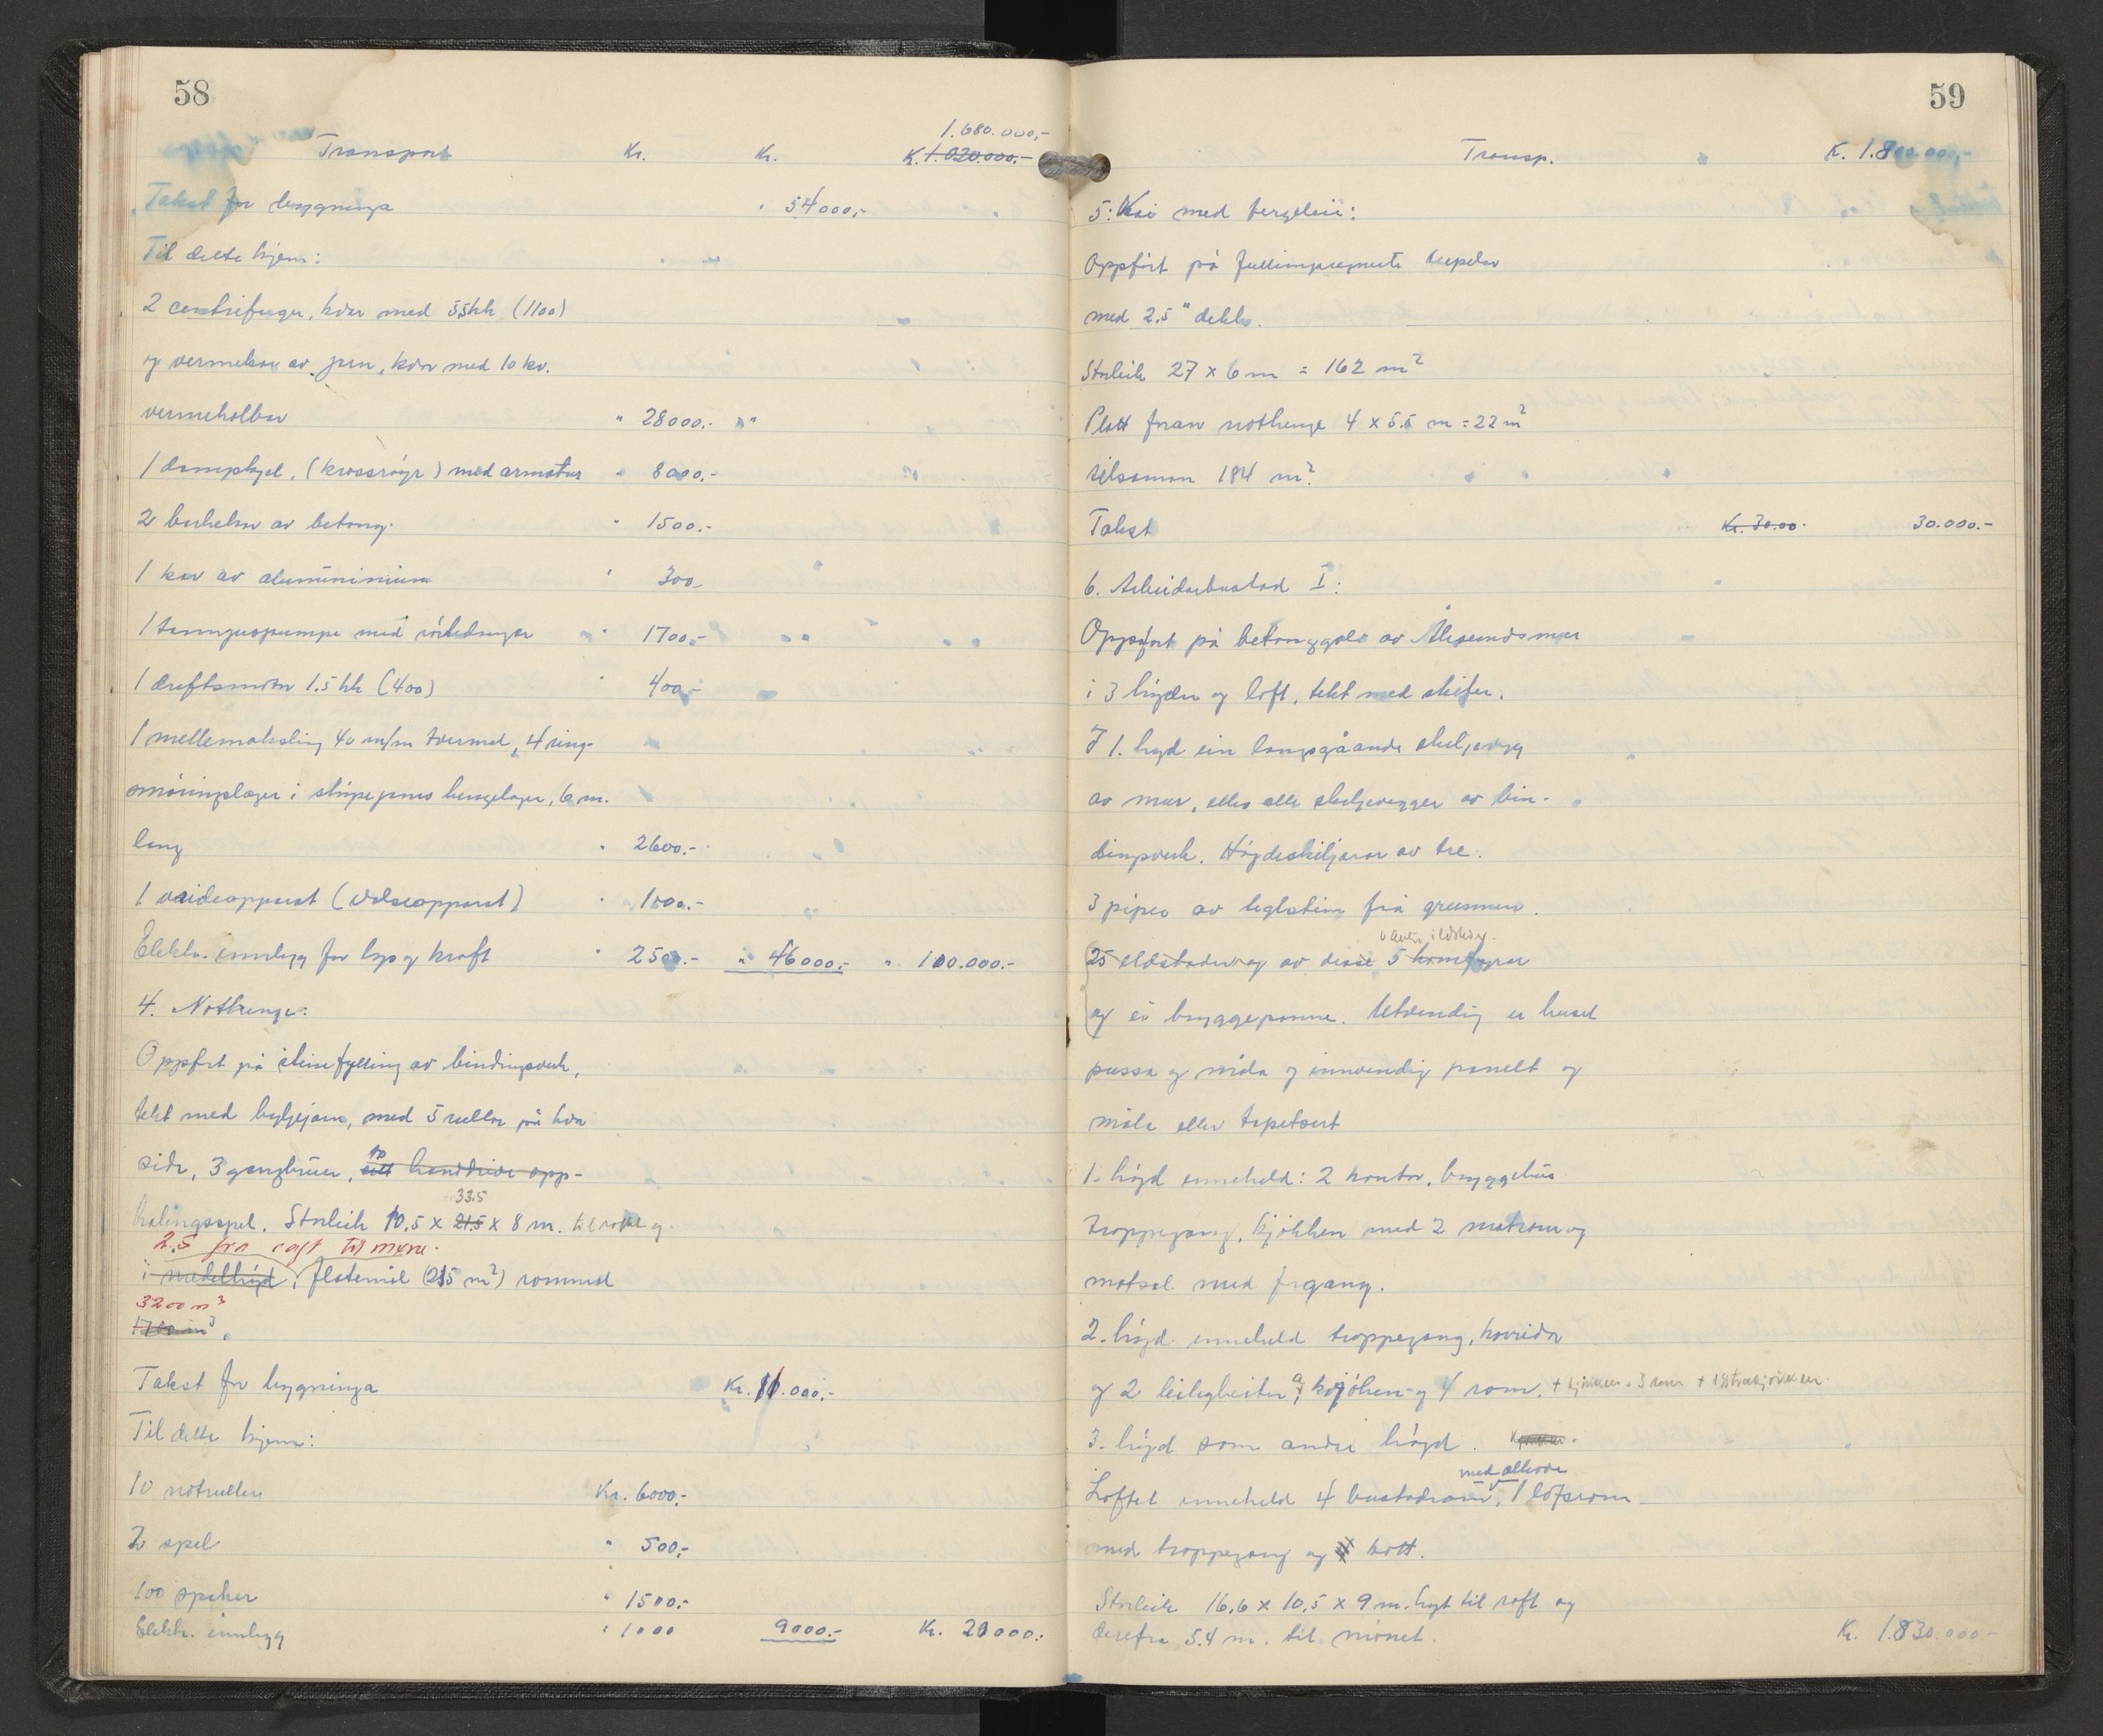 58
1.680.000,-
Transport Kr. Kr. K. 1.020.000.-
Takst for bygninga " 54000,-
Til dette kjem:
2 centrifuger, kvar med 5,5 hk (1100)
og vermekar av jern, kvar med 10 kv.
vermekolbar " 28000.- "
1 dampkjel, (krossrøyr) med armatur " 8000.-
2 barkekar av betong. " 1500.-
1 kar av aluminium " 300.-
1 pumpe med rørledningar " 1700.-
1 driftsmotor 1.5 hk (400) " 400.-
1 mellemaksling 40 m/m tvermål, 4 ring-
smøringslager i støpejerns hengelager, 6 m.
lang " 2600.-
1 vaideapparat (valseapparat) " 1000.-
Elektr. innlegg for lys og kraft " 2500.- " 46000.- " 100.000.-
4. Nothenge:
Oppført på steinfylling av bindingsverk,
tekt med bylgjejarn, med 5 rullar på kvar
side, 3 gangbruer, to eitt handdrive opp-
33.5
halingsspel. Storleik 10.5 x 21.5 x 8 m. til raft og
2.5 fra raft til møne.
i medelhøgd, flatemål (215 m²) rommål
3200 m³
1700 m³.
Takst for bygninga Kr. 11.000,-
Til dette kjem:
10 notruller Kr. 6000,-
2 spel " 500,-
100 speker " 1500.-
Elektr. innlegg " 1000 9000.- Kr. 20000.-
59
Transp. K. 1.800.000,-
5. Kai med fergeleie:
Oppført på fullimpregnerte pelar
med 2.5" dekke.
Storleik 27 x 6 m = 162 m²
Platt foran nothenge 4 x 5.5 m = 22 m²
tilsaman 184 m².
Takst Kr. 30.00. 30.000.-
6. Arbeidarbustad I:
Oppført på betonggolv av Ålesundsmur
i 3 høgder og loft, tekt med skifer.
I 1. høgd ein langsgåande skiljevegg
av mur, ellers alle skiljevegger av bin-
dingsverk. Høgdeskiljarar av tre.
3 piper av teglstein frå grunnen.
25 eldstader og av desse 5 komfyrer
og ei bryggepanne. Utvendig er huset
pussa og måla og innvendig panelt og
måla eller tapetsert
1. høgd inneheld: 2 kontor, bryggehus
trappegang, kjøkken med 2 matrom og
matsal med forgang.
2. høgd inneheld trappegang, korridor
og 2 leilegheiter à kjøken og 4 rom. + kjøkken + 3 rom + 1 kjøkken.
3. høgd som andre høgd.
med alkove
Loftet inneheld 4 bustadrom, 1 loftsrom
med trappegang og kott.
Storleik 16,6 x 10,5 x 9 m. høgt til raft og
derefra 5.4 m. til mønet. Kr. 1.830.000.-